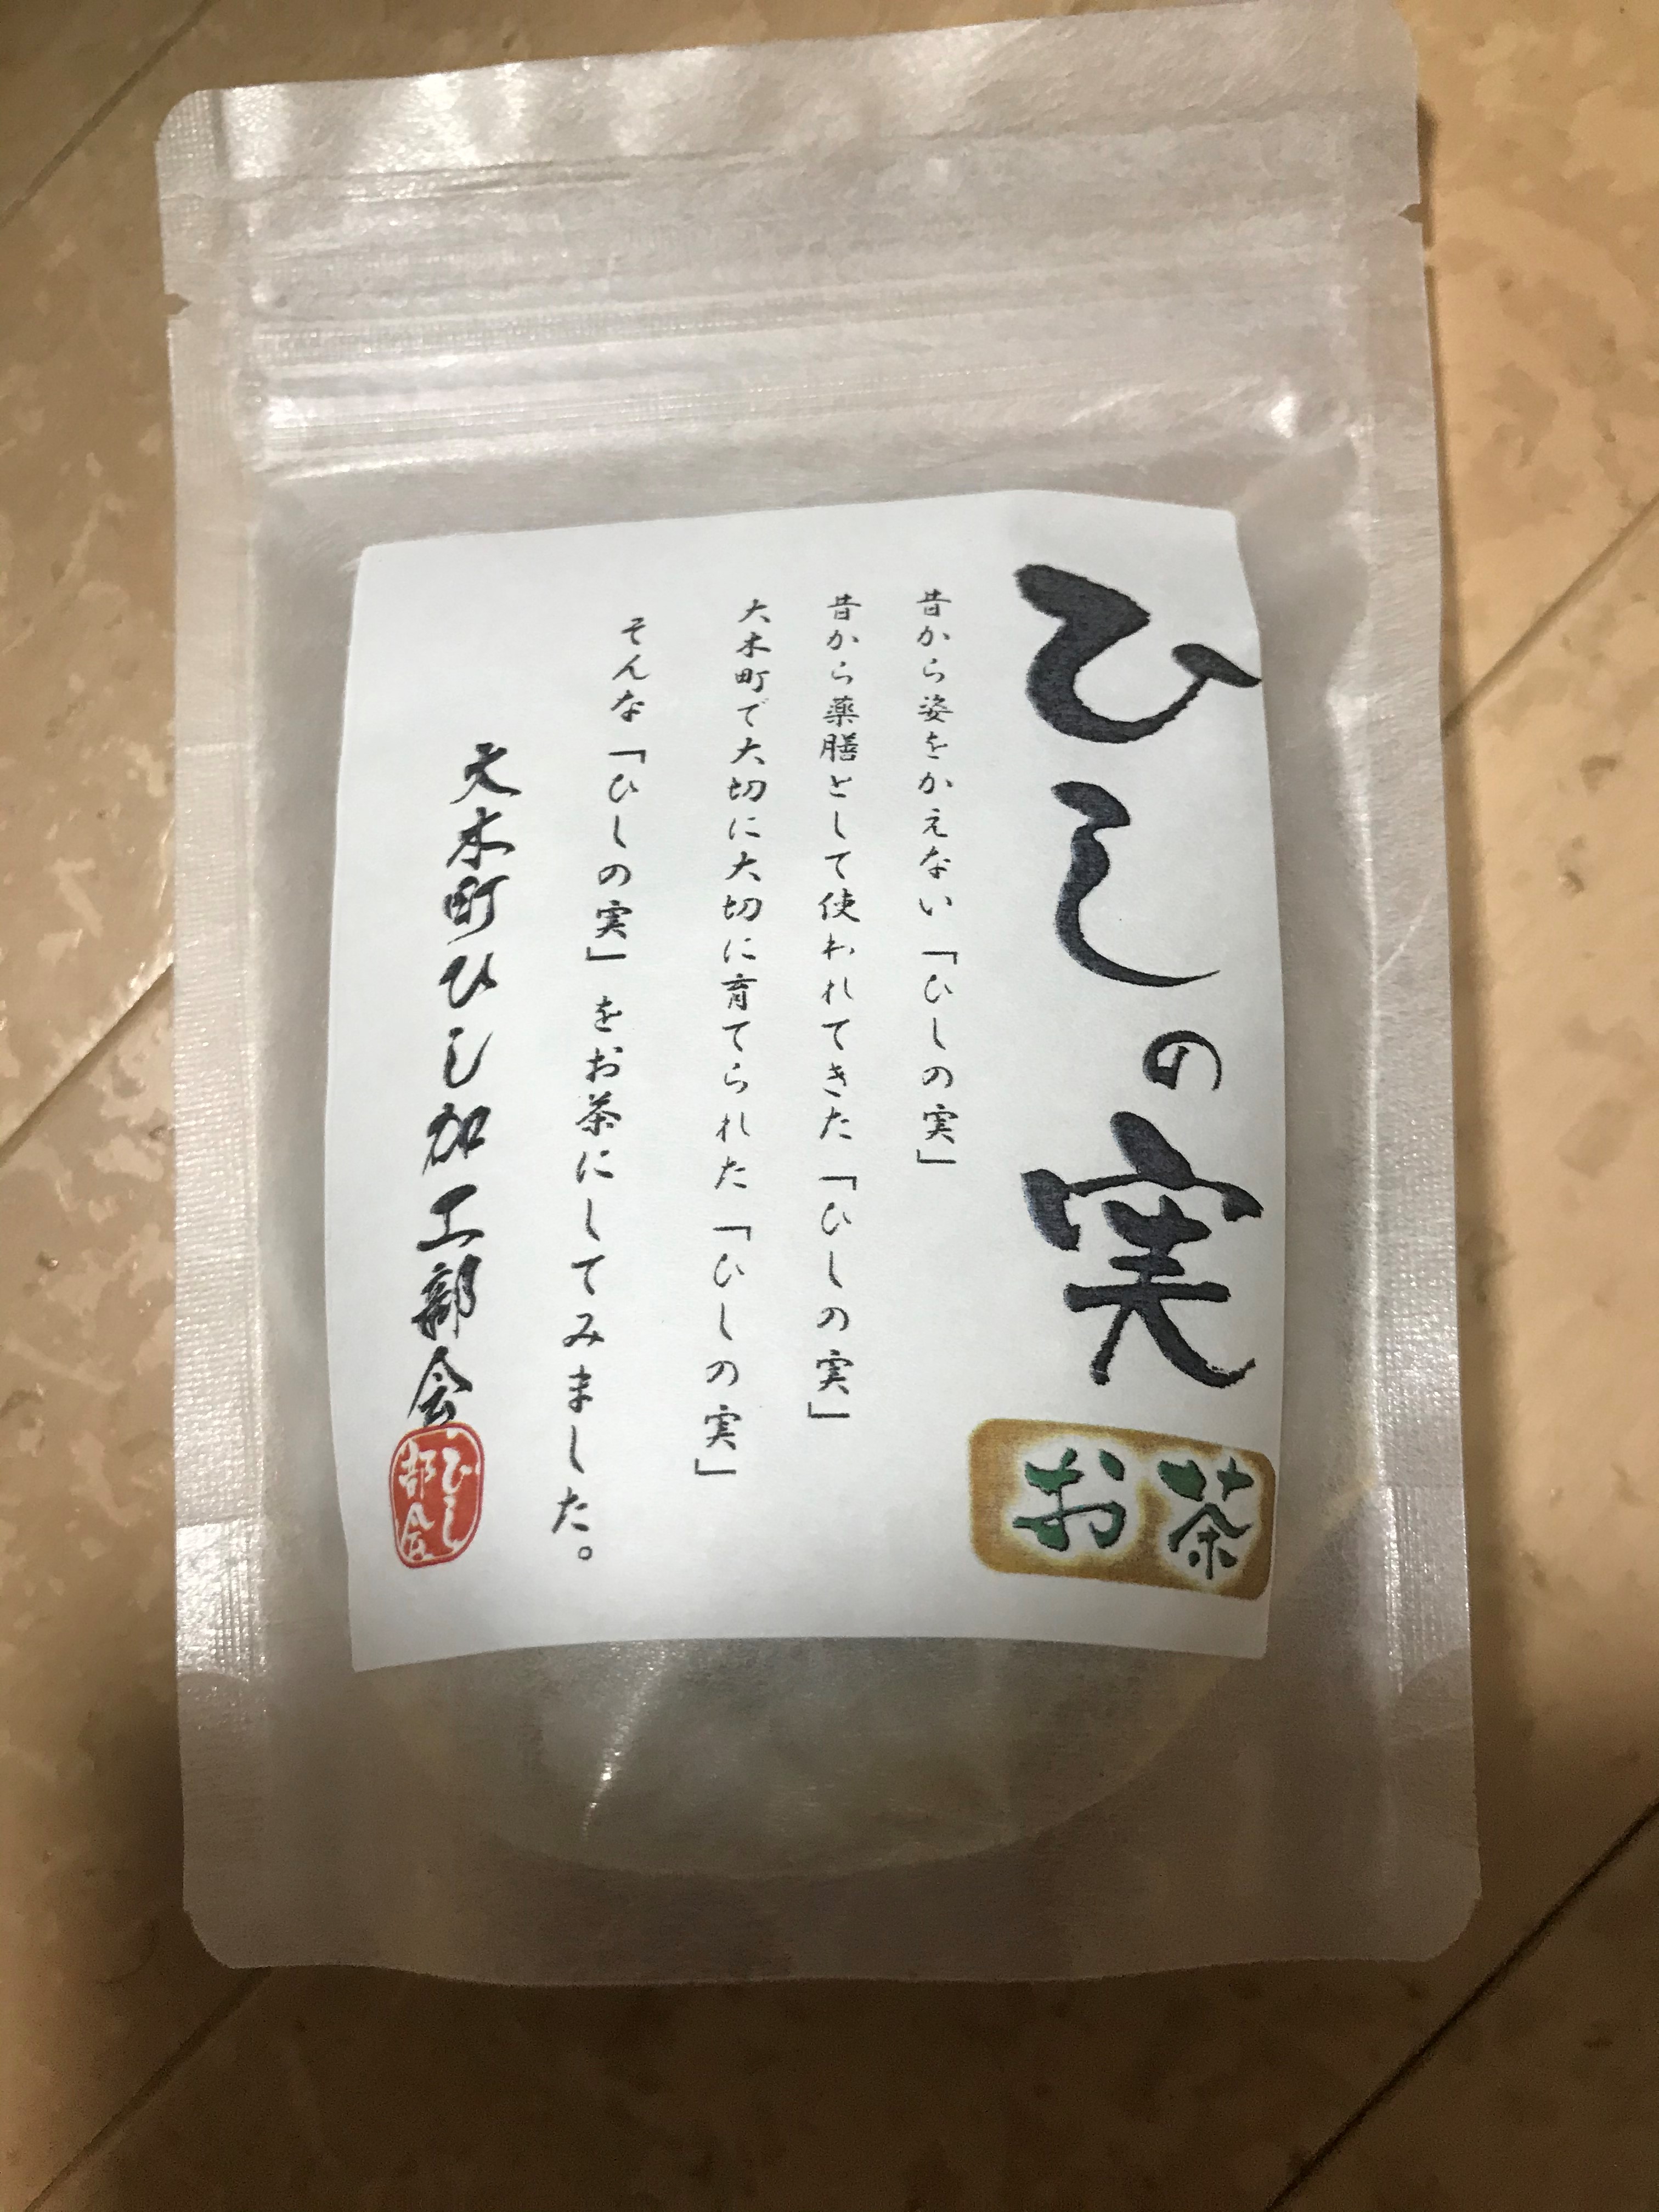 ひしの実
お茶
昔から姿をかえない「ひしの実」
昔から薬膳として使われてきた「ひしの実」
大木町で大切に大切に育てられた「ひしの実」
そんな「ひしの実」をお茶にしてみました。
大木町ひし加工部会
ひし
部会